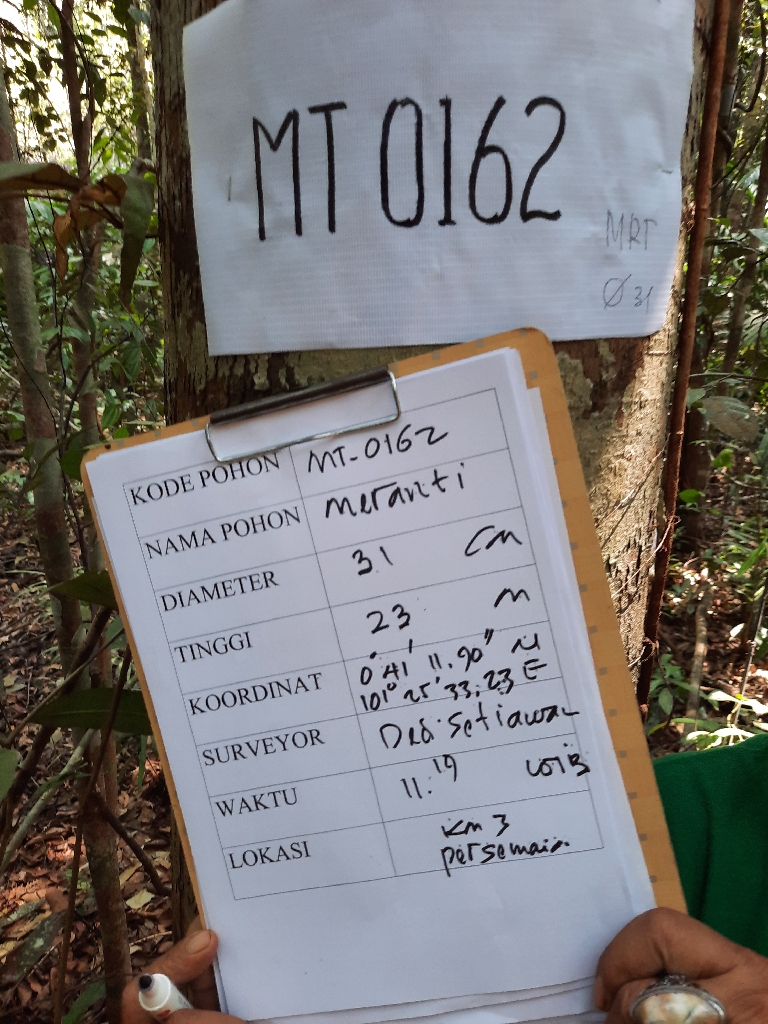 MT 0162
MRT
Ø 31
KODE POHON MT-0162
NAMA POHON Meranti
DIAMETER 31 cm
TINGGI 23 m
KOORDINAT 0° 41' 11.90" N
101° 25' 33.23 E
SURVEYOR Dedi Setiawan
WAKTU 11.19 WIB
LOKASI Km 3
persemaian